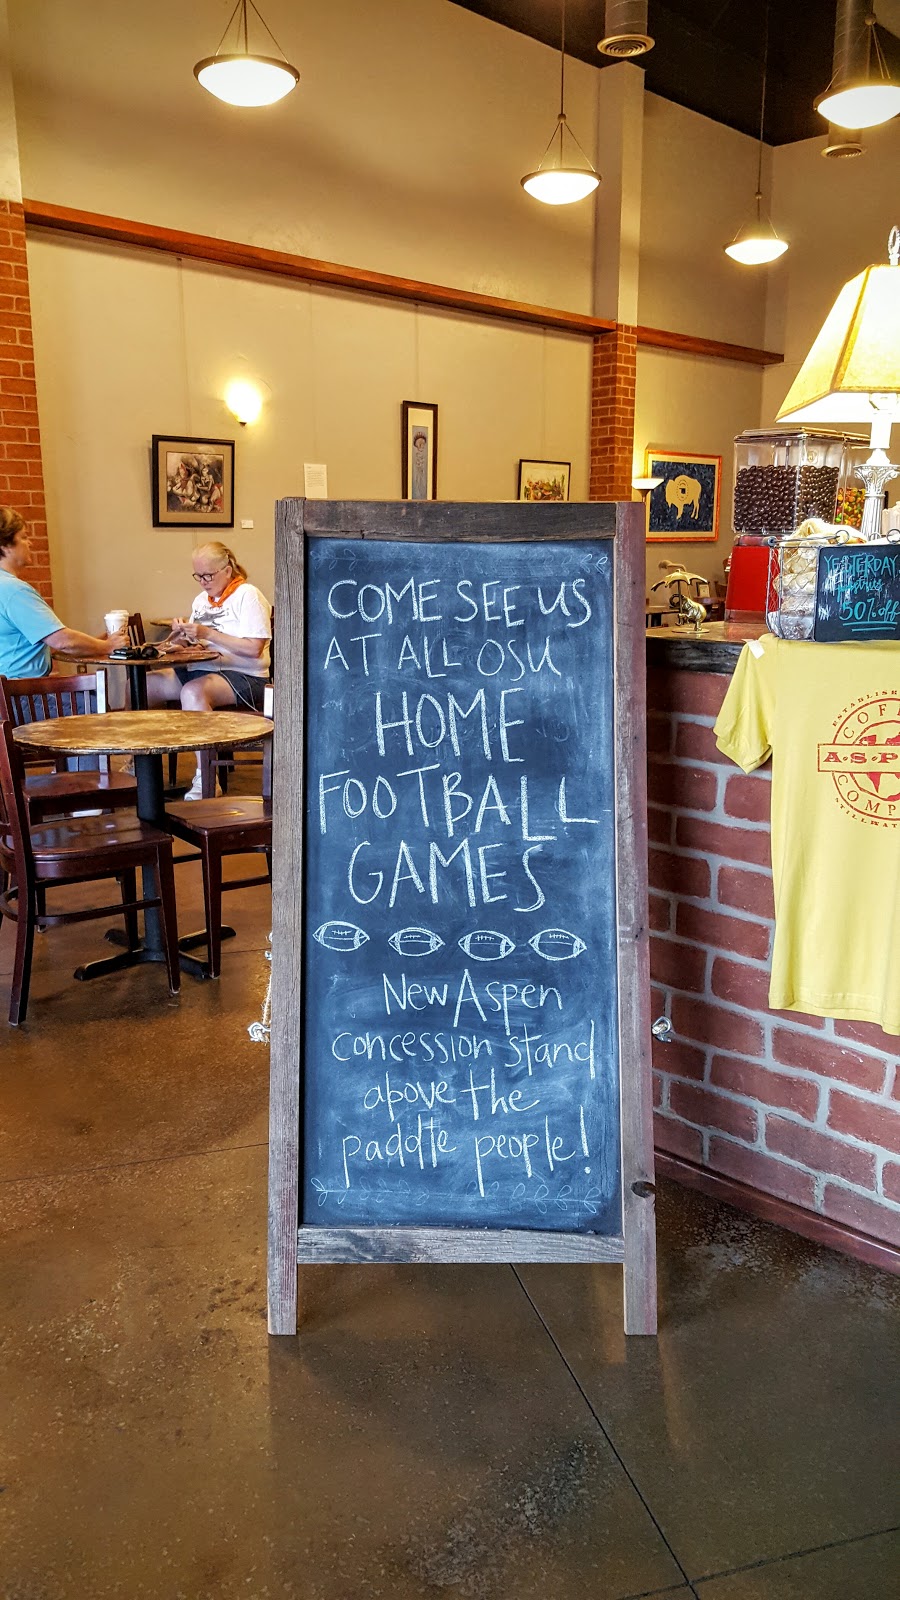 COME SEE US
AT ALL OSU
HOME
FOOTBALL
GAMES
New Aspen
concession stand
above the
paddle people!
YESTERDAY
50% off
ESTABLIS
COFF
ASP
COMP
STILLWAT